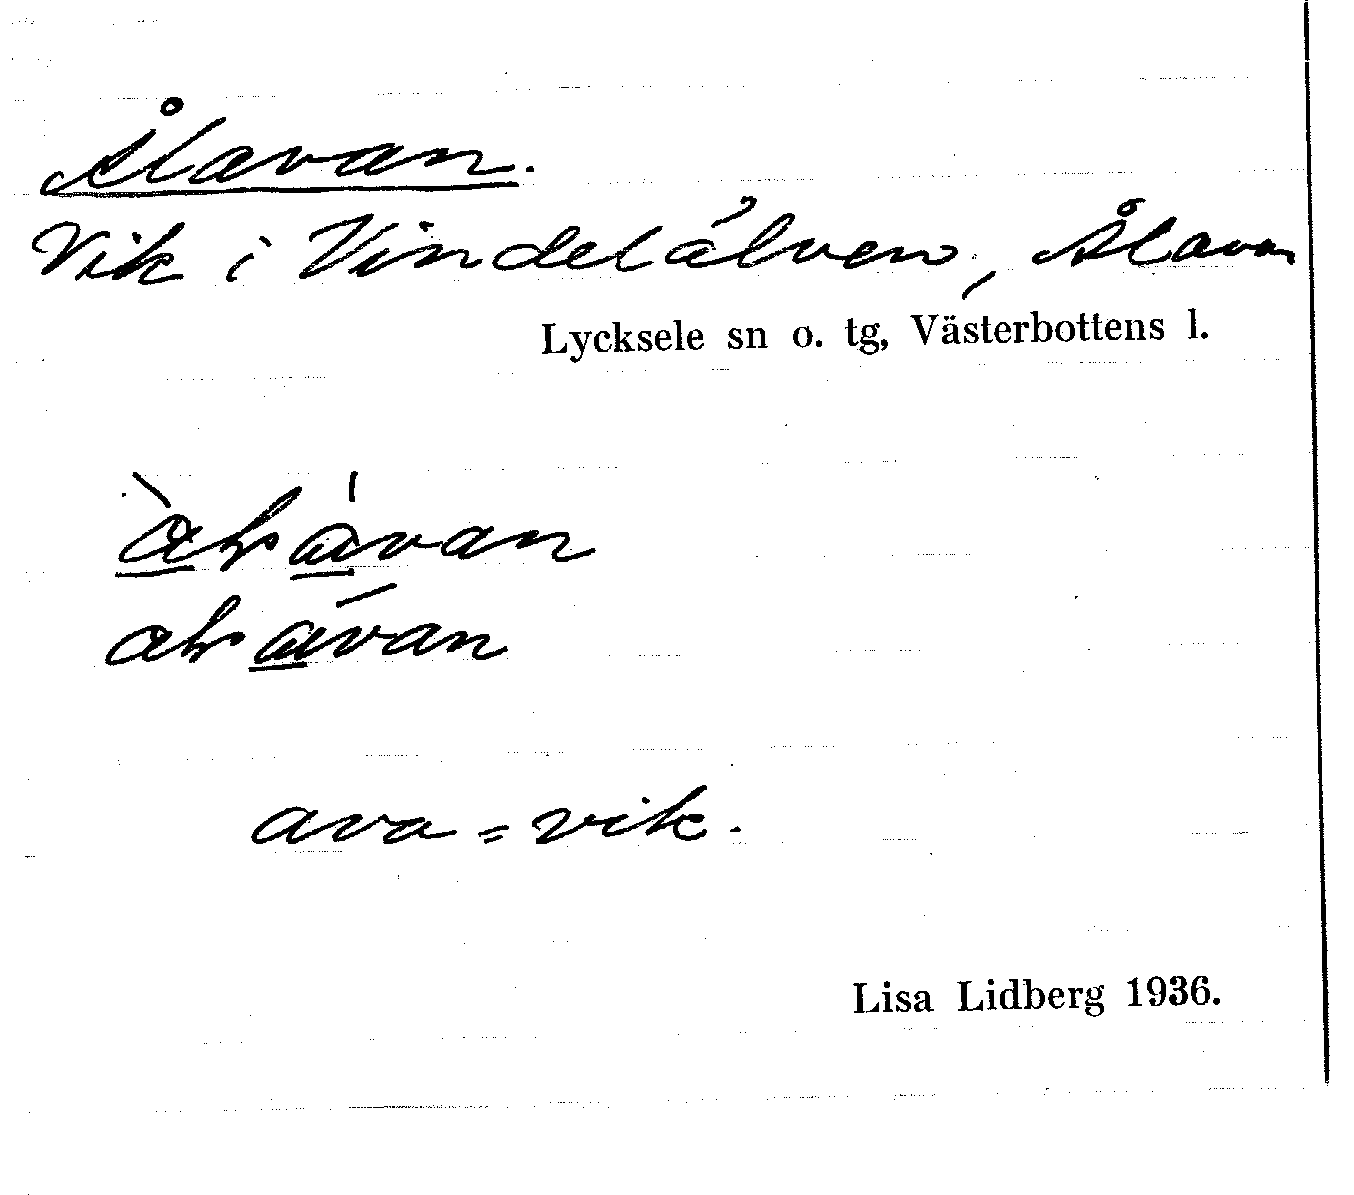 Ålavan.
Vik i Vindelälven, Ålavan
Lycksele sn o. tg, Västerbottens l.
ava = vik.
Lisa Lidberg 1936.